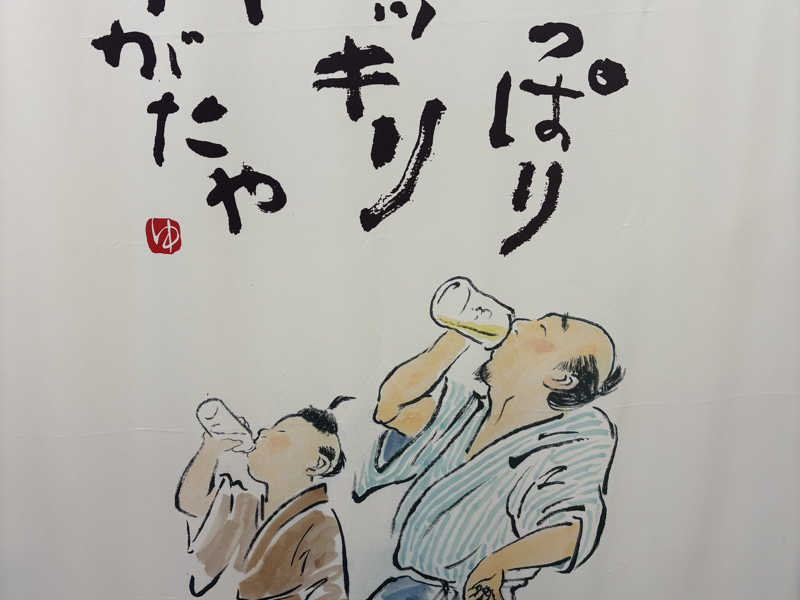 っぱり
ッキリ
がたや
ゆ